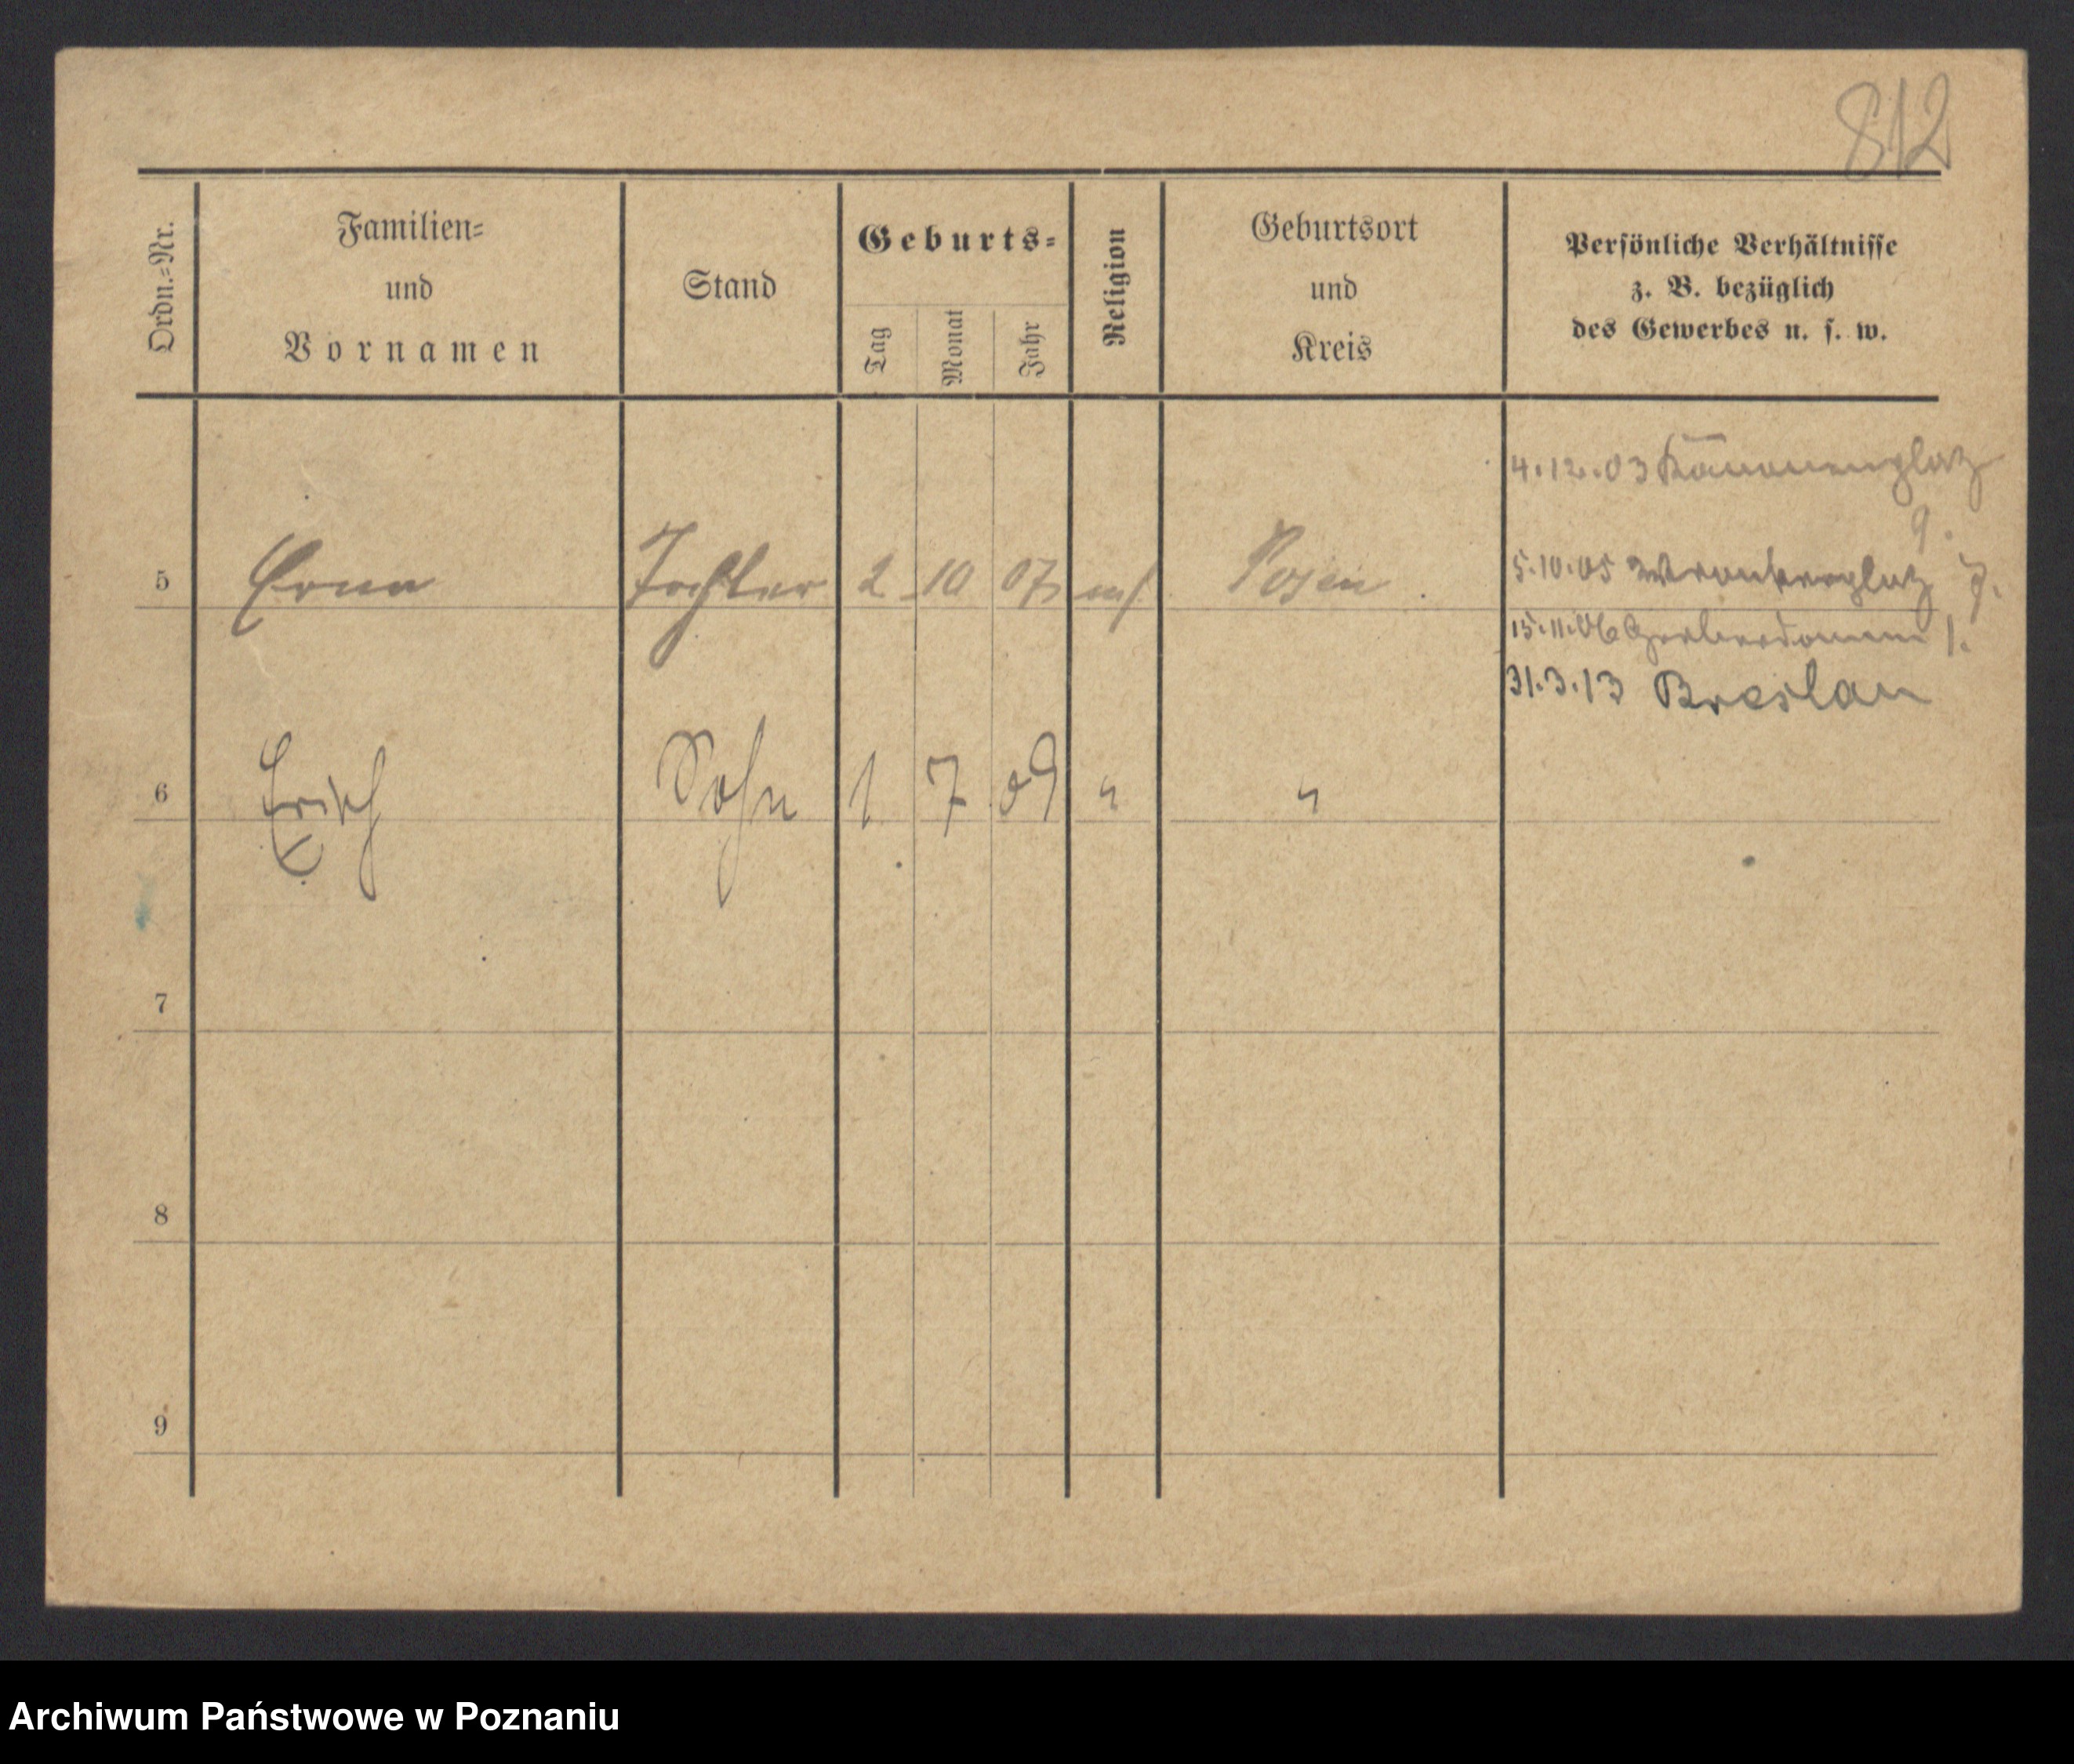 812
Ordn.-Nr.
Familien-
und
Vornamen
Stand
Geburts-
Tag
Monat
Jahr
Religion
Geburtsort
und
Kreis
Persönliche Verhältnisse
z. B. bezüglich
des Gewerbes u. s. w.
4.12.03 Kanonenplatz
9.
5 Erna Tochter 2 10 07 Posen
5.10.05 Wronkerplatz 7.
15.11.06 Gerberdamm 1.
31.3.13 Breslau
6 Erich Sohn 1 7 09 " "
7
8
9
Archiwum Państwowe w Poznaniu